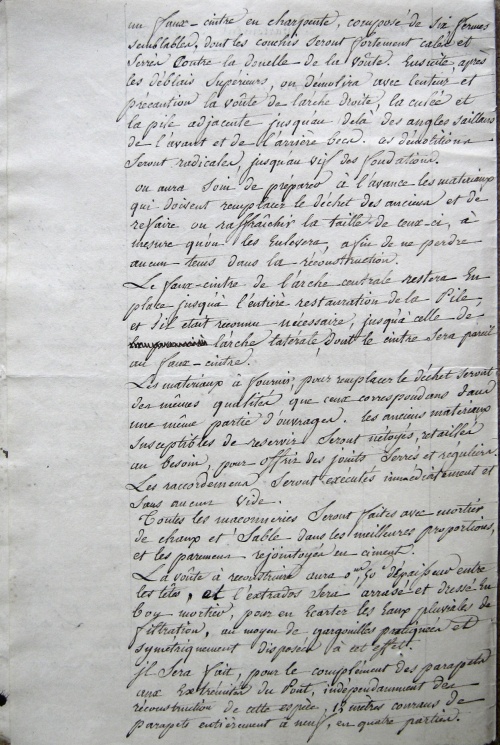 un faux-cintre en charpente, composé de six fermes
semblables, dont les couchis seront fortement calés et
serrés contre la douelle de la voûte. Ensuite, après
les déblais supérieurs, on démolira avec lenteur et
précaution la voûte de l'arche droite, la culée et
la pile adjacente jusqu'au delà des angles saillans
de l'avant et de l'arrière becs. Ces démolitions
seront radicales, jusqu'au vif des fondations.
on aura soin de préparer à l'avance les matériaux
qui doivent remplacer le déchet des anciens et de
refaire ou raffraîchir la taille de ceux-ci, à
mesure qu'on les enlevera, afin de ne perdre
aucun tems dans la réconstruction.
Le faux-cintre de l'arche centrale restera en
place jusqu'à l'entière restauration de la Pile,
et s'il était reconnu nécessaire, jusqu'à celle de
l'arche latérale, dont le cintre sera pareil
au faux-cintre.
Les matériaux à fournir, pour remplacer le déchet seront
des mêmes qualités que ceux correspondans dans
une même partie d'ouvrages. les anciens matériaux
susceptibles de reservir seront nétoyés, retaillés
au besoin, pour offrir des joints serrés et réguliers.
Les raccordemens seront exécutés immédiatement et
sans aucun vide.
Toutes les maconneries seront faites avec mortier
de chaux et sable dans les meilleures proportions,
et les paremens rejointoyés en ciment.
La voûte à reconstruire aura 0m,50c d'épaisseur entre
les têtes, et l'extrados sera arrasé et dressé en
bon mortier, pour en écarter les eaux pluviales de
filtration, au moyen de gargouilles pratiquées et
symétriquement disposées à cet effet.
il sera fait, pour le complément des parapets
aux extrémités du Pont, indépendamment de
réconstruction de cette espèce, mètres courans de
parapets entièrement à neuf, en quatre parties.